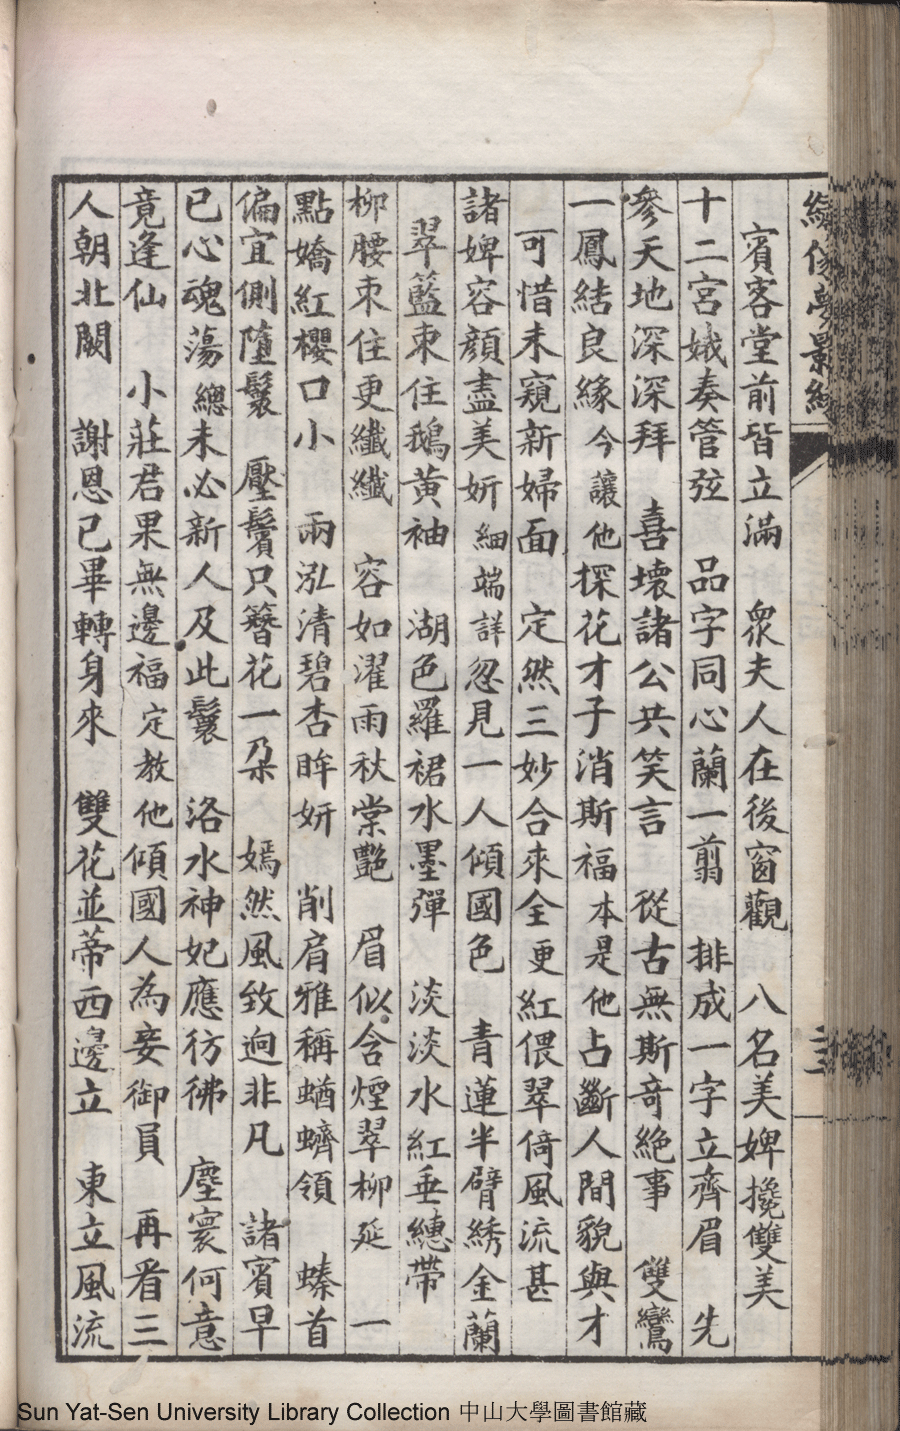 繡像夢影緣
三
賓客堂前皆立滿 衆夫人在後窗觀 八名美婢攙雙美
十二宮娥奏管弦 品字同心蘭一翦 排成一字立齊眉 先
參天地深深拜 喜壞諸公共笑言 從古無斯奇絶事 雙鸞
一鳳結良緣 今讓他探花才子消斯福 本是他占斷人間貌與才
可惜未窺新婦面 定然三妙合來全 更紅偎翠倚風流甚
諸婢容顔盡美妍 細端詳忽見一人傾國色 青蓮半臂綉金蘭
翠藍束住鵝黄袖 湖色羅裙水墨彈 淡淡水紅垂繐帶
柳腰束住更纖纖 容如濯雨秋棠艷 眉似含煙翠柳延 一
點嬌紅櫻口小 兩泓清碧杏眸妍 削肩雅稱蝤蠐領 螓首
偏宜側墮鬟 壓鬢只簪花一朶 嫣然風致迥非凡 諸賓早
已心魂蕩 總未必新人及此鬟 洛水神妃應彷彿 塵寰何意
竟逢仙 小莊君果無邊福 定教他傾國人為妾御員 再看三
人朝北闕 謝恩已畢轉身來 雙花並蒂西邊立 東立風流
Sun Yat-Sen University Library Collection 中山大學圖書館藏